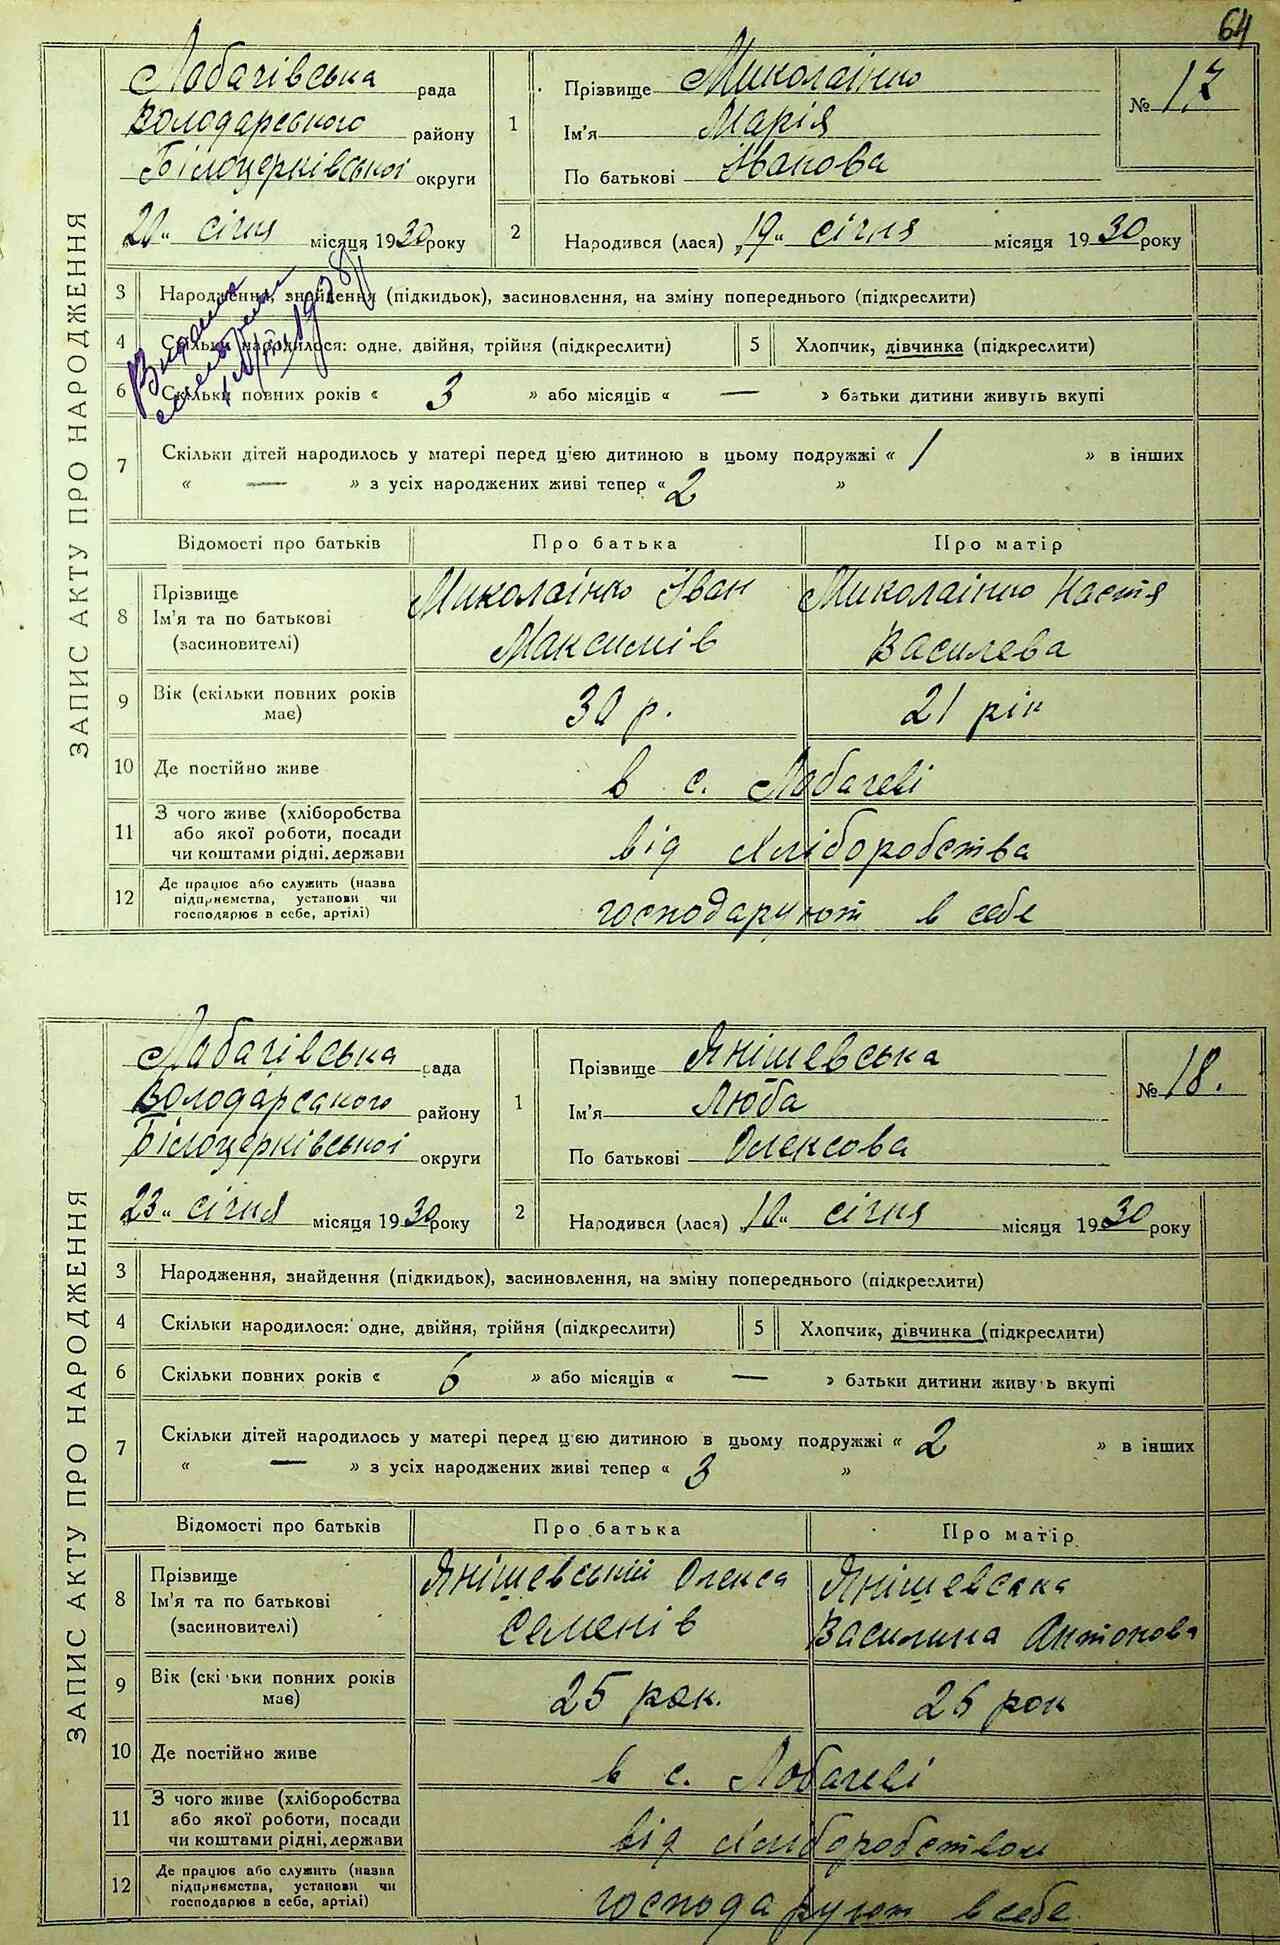 64
Лобачівська рада
Володарського району
Білоцерківської округи
20 " січня місяця 1930 року
1
Прізвище Миколаінко
Ім'я Марія
По батькові Іванова
№ 17
2
Народився (лася) „19" січня місяця 1930 року
ЗАПИС АКТУ ПРО НАРОДЖЕННЯ
3 Народження, знайдення (підкидьок), засиновлення, на зміну попереднього (підкреслити)
4 Скільки народилося: одне, двійня, трійня (підкреслити) 5 Хлопчик, дівчинка (підкреслити)
6 Скільки повних років « 3 » або місяців « — » батьки дитини живуть вкупі
7 Скільки дітей народилось у матері перед ц'єю дитиною в цьому подружжі « 1 » в інших
« — » з усіх народжених живі тепер « 2 »
Відомості про батьків Про батька Про матір
8 Прізвище Ім'я та по батькові (засиновителі)
Миколаінко Іван Миколаінко Настя
Максимів Василева
9 Вік (скільки повних років має) 30 р. 21 рік
10 Де постійно живе в с. Лобачеві
11 З чого живе (хліборобства або якої роботи, посади чи коштами рідні, держави від хліборобства
12 Де працює або служить (назва підприємства, установи чи господарює в себе, артілі) господаруют в себе
Лобачівська рада
Володарского району
Білоцерківської округи
23 " січня місяця 1930 року
1
Прізвище Янішевська
Ім'я Люба
По батькові Олексова
№ 18.
2
Народився (лася) „10" січня місяця 1930 року
ЗАПИС АКТУ ПРО НАРОДЖЕННЯ
3 Народження, знайдення (підкидьок), засиновлення, на зміну попереднього (підкреслити)
4 Скільки народилося: одне, двійня, трійня (підкреслити) 5 Хлопчик, дівчинка (підкреслити)
6 Скільки повних років « 6 » або місяців « — » батьки дитини живуть вкупі
7 Скільки дітей народилось у матері перед ц'єю дитиною в цьому подружжі « 2 » в інших
« — » з усіх народжених живі тепер « 3 »
Відомості про батьків Про батька Про матір
8 Прізвище Ім'я та по батькові (засиновителі)
Янішевський Олекса Янішевска
Семенів Василина Антонова
9 Вік (скільки повних років має) 25 рок. 26 рок
10 Де постійно живе в с. Лобачеві
11 З чого живе (хліборобства або якої роботи, посади чи коштами рідні, держави від хліборобством
12 Де працює або служить (назва підприємства, установи чи господарює в себе, артілі) господаруют в себе